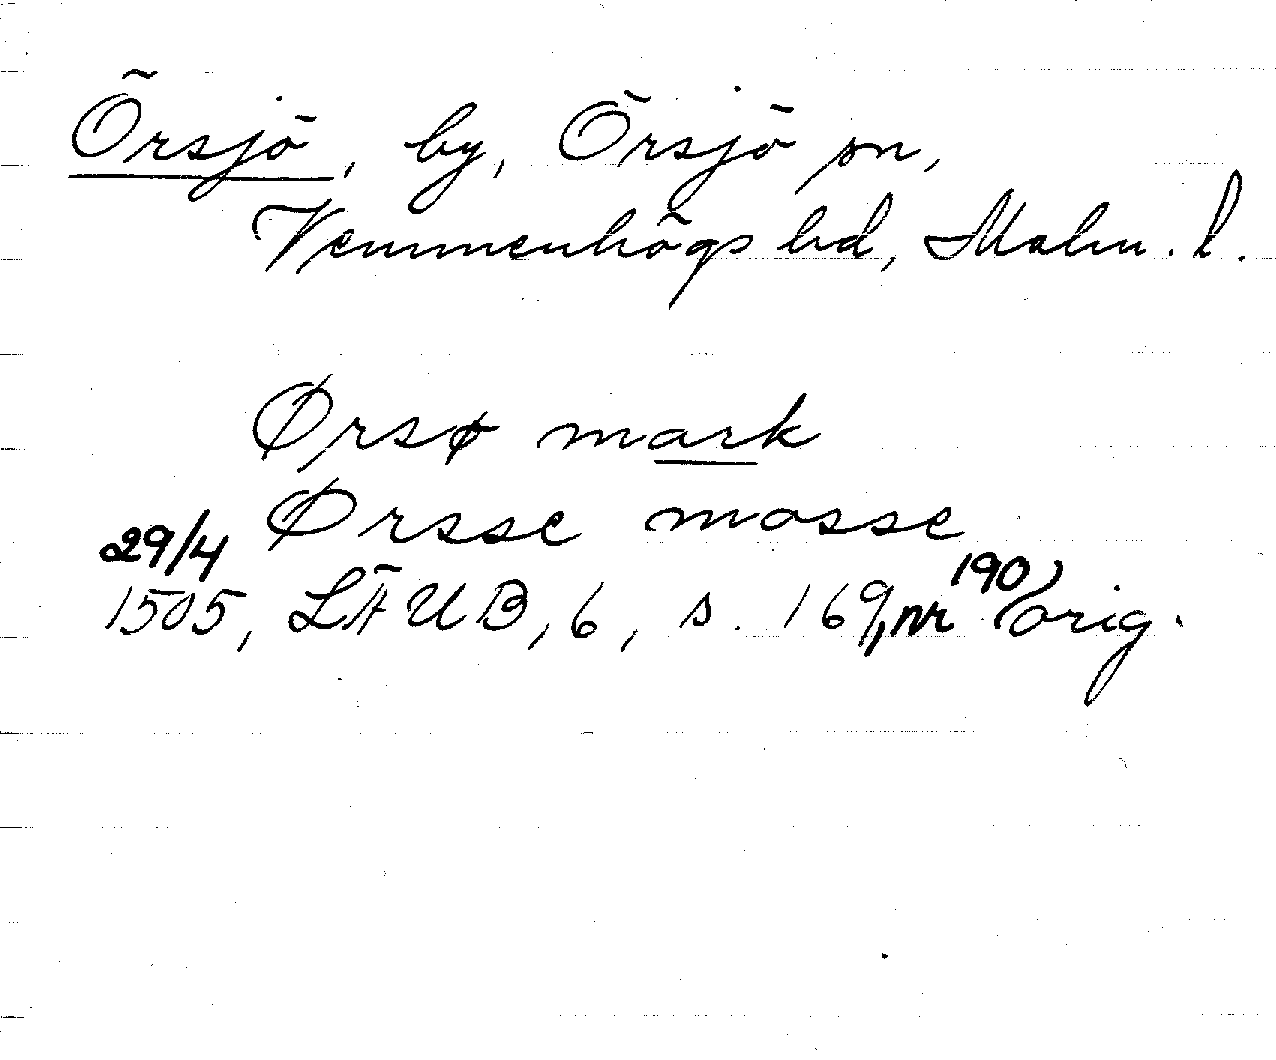 Örsjö, by, Örsjö sn,
Vemmenhögs hd, Malm. l.
Ørsø mark
Ørsse mosse
29/4
1505, LÄUB, 6, s. 169, nr 190, orig.